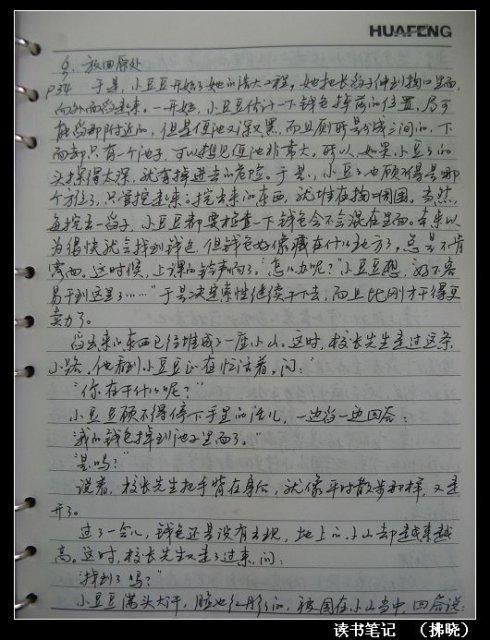 HUAFENG
9. 放回原处
P34 于是，小豆豆开始了她的浩大工程。她把长舀子伸到掏口里面，
向外面舀起来。一开始，小豆豆估计一下钱包掉落的位置，尽可
能舀那附近的，但是便池又深又黑，而且厕所是分成三间的，下
面却只有一个池子，可以想见便池非常大。所以，如果小豆豆的
头探得太深，就有掉进去的危险。于是，小豆豆也顾不得是哪
个方位了，只管挖起来。挖出来的东西，就堆在掏口周围。当然，
每挖出一舀子，小豆豆都要检查一下钱包会不会混在里面。本来以
为很快就会找到钱包，但钱包好像藏在什么地方了，总是不肯
露面。这时候，上课的铃声响了。“怎么办呢？”小豆豆想，“好不容
易干到这里了……”于是决定索性继续干下去，而且比刚才干得更
卖力了。
舀出来的东西已经堆成了一座小山。这时，校长先生走过这条
小路，他看到小豆豆正在忙活着，问：“
“你在干什么呢？”
小豆豆顾不得停下手里的活儿，一边舀一边回答：
“我的钱包掉到池子里面了。”
“是吗？”
说着，校长先生把手背在身后，就像平时散步那样，又走
开了。
过了一会儿，钱包还是没有出现，地上的小山却越来越
高。这时，校长先生又走了过来，问：
“找到了吗？”
小豆豆满头大汗，脸也红彤彤的，被围在小山当中，回答说：
读书笔记 （拂晓）